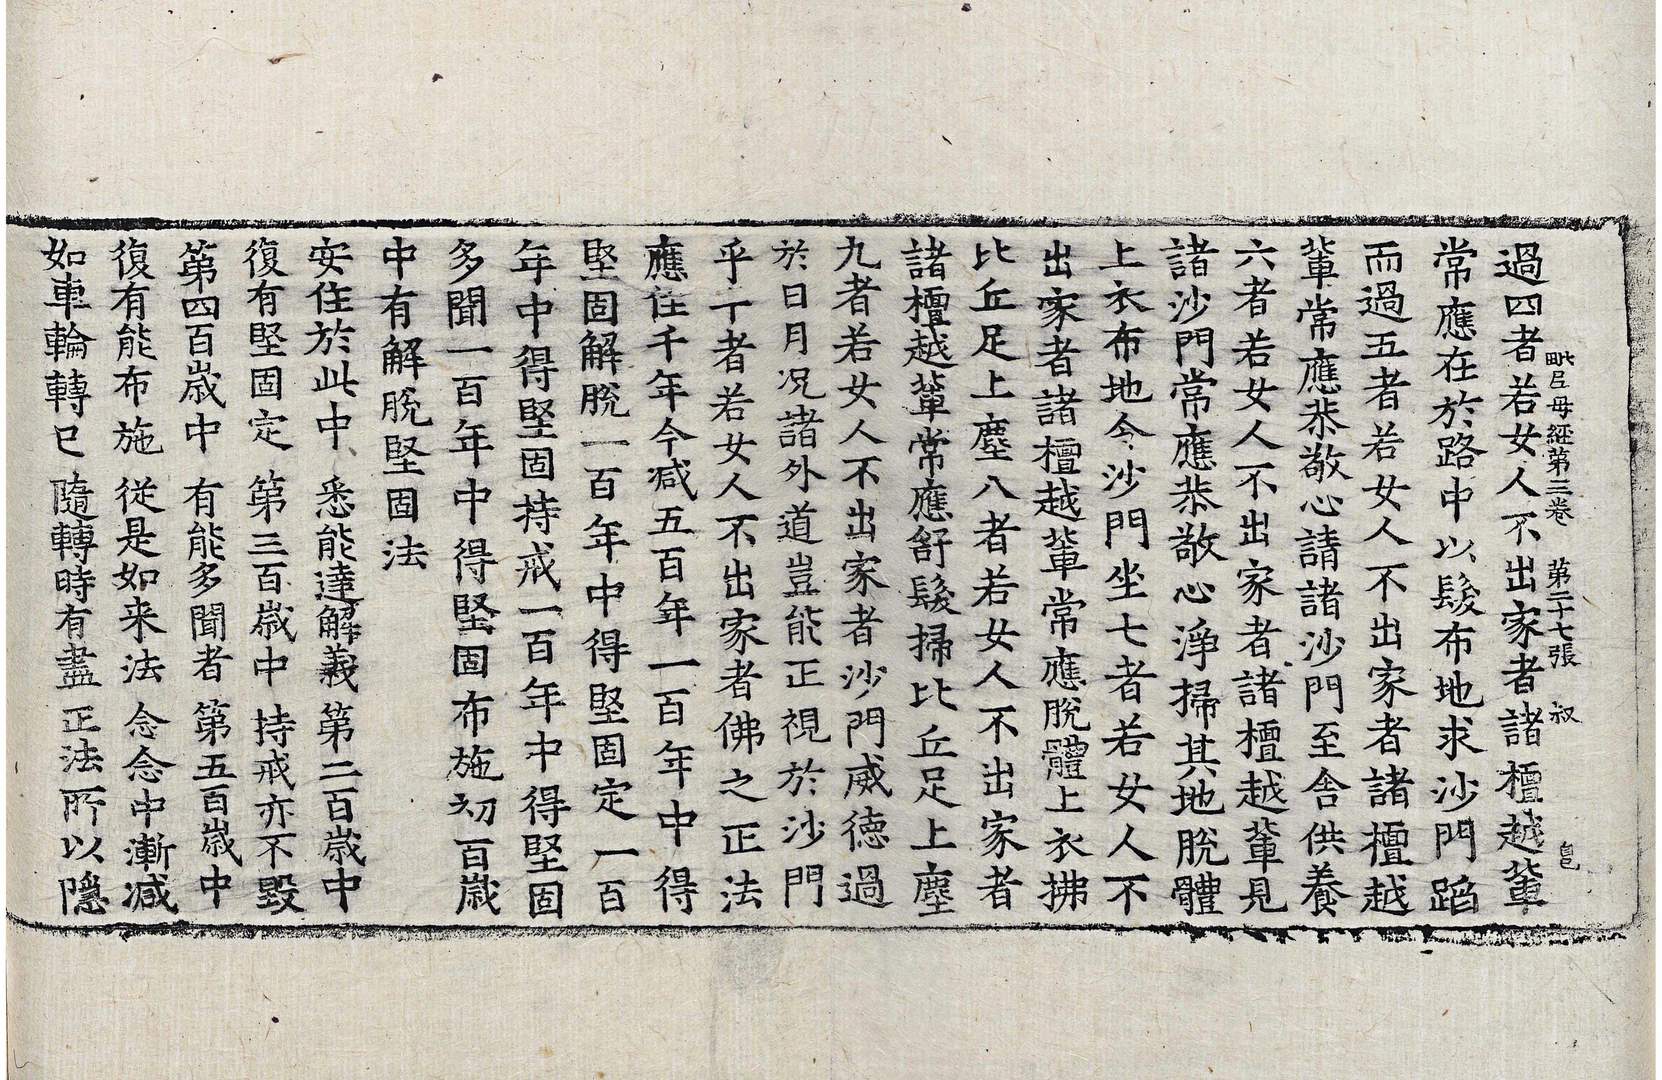 毗尼母經第三卷 第二十七張 叔
過四者若女人不出家者諸檀越輩
常應在於路中以髮布地求沙門蹈
而過五者若女人不出家者諸檀越
輩常應恭敬心請諸沙門至舍供養
六者若女人不出家者諸檀越輩見
諸沙門常應恭敬心淨掃其地脫體
上衣布地令沙門坐七者若女人不
出家者諸檀越輩常應脫體上衣拂
比丘足上塵八者若女人不出家者
諸檀越輩常應舒髮掃比丘足上塵
九者若女人不出家者沙門威德過
於日月况諸外道豈能正視於沙門
乎丁者若女人不出家者佛之正法
應住千年今減五百年一百年中得
堅固解脫一百年中得堅固定一百
年中得堅固持戒一百年中得堅固
多聞一百年中得堅固布施初百歲
中有解脫堅固法
安住於此中 悉能達解義 第二百歲中
復有堅固定 第三百歲中 持戒亦不毀
第四百歲中 有能多聞者 第五百歲中
復有能布施 從是如来法 念念中漸減
如車輪轉已 隨轉時有盡 正法所以隱